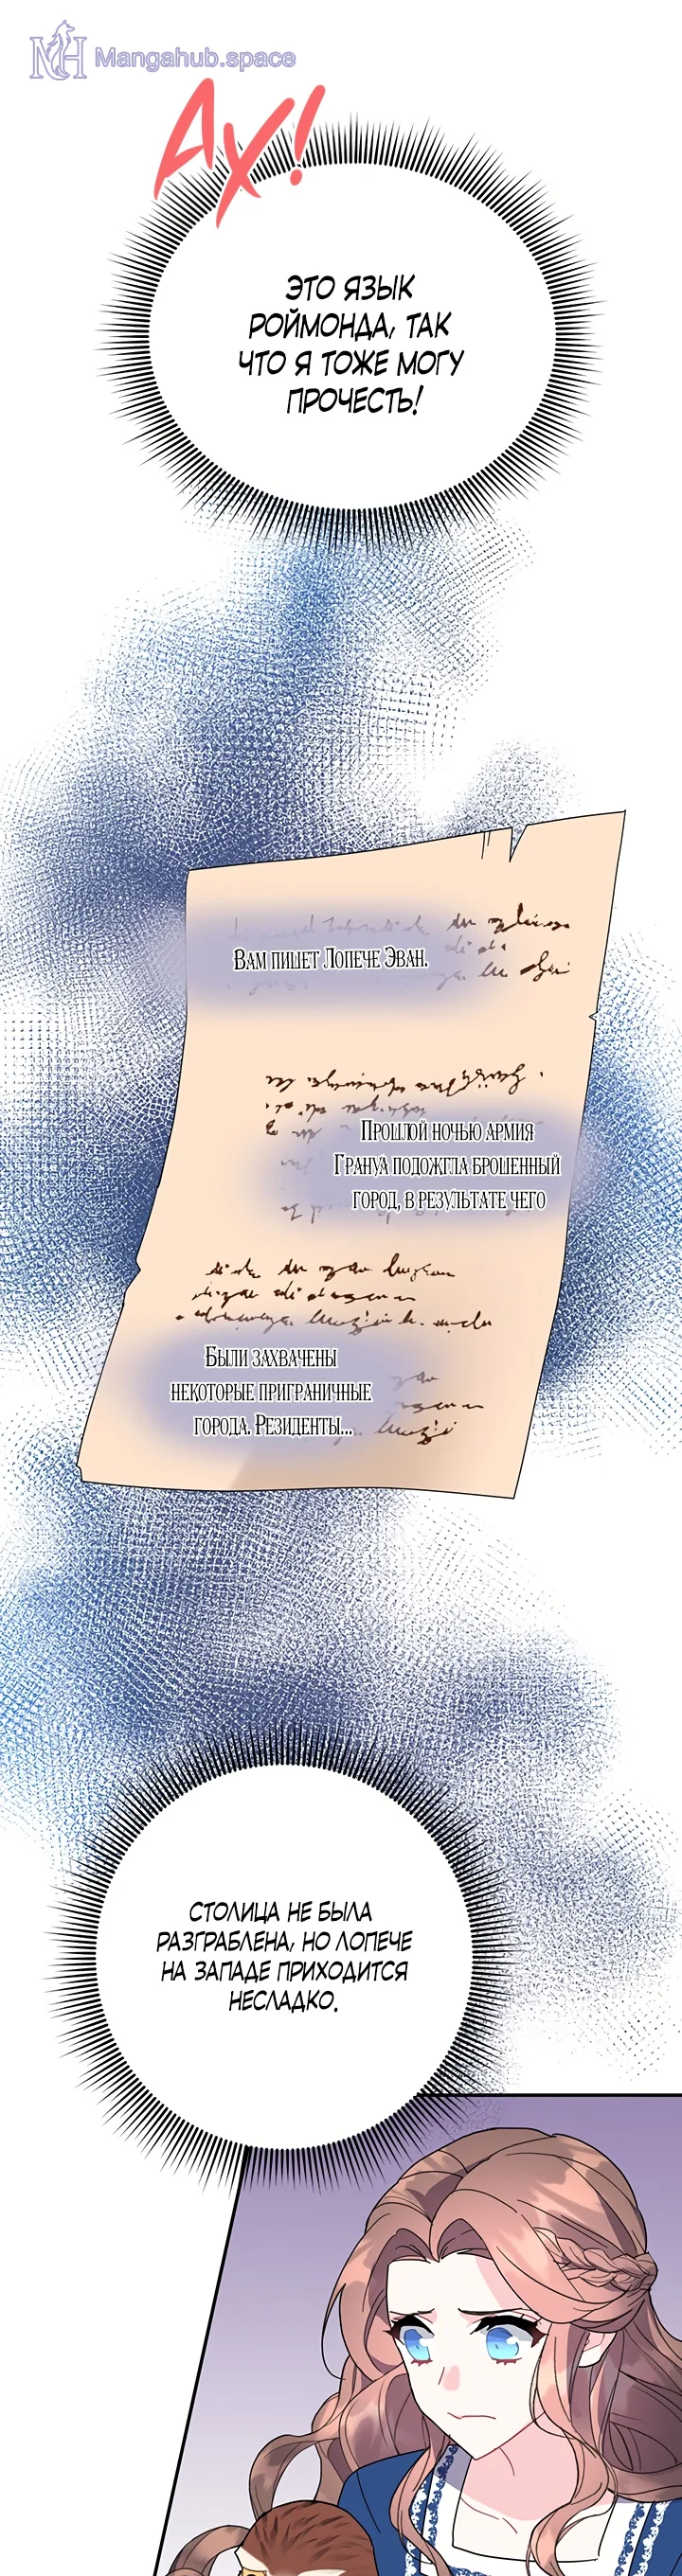 Mangahub.space
АХ!
ЭТО ЯЗЫК
РОЙМОНДА, ТАК
ЧТО Я ТОЖЕ МОГУ
ПРОЧЕСТЬ!
Вам пишет Лопече Эван.
Прошлой ночью армия
Грануа подожгла брошенный
город, в результате чего
Были захвачены
некоторые приграничные
города. Резиденты...
СТОЛИЦА НЕ БЫЛА
РАЗГРАБЛЕНА, НО ЛОПЕЧЕ
НА ЗАПАДЕ ПРИХОДИТСЯ
НЕСЛАДКО.